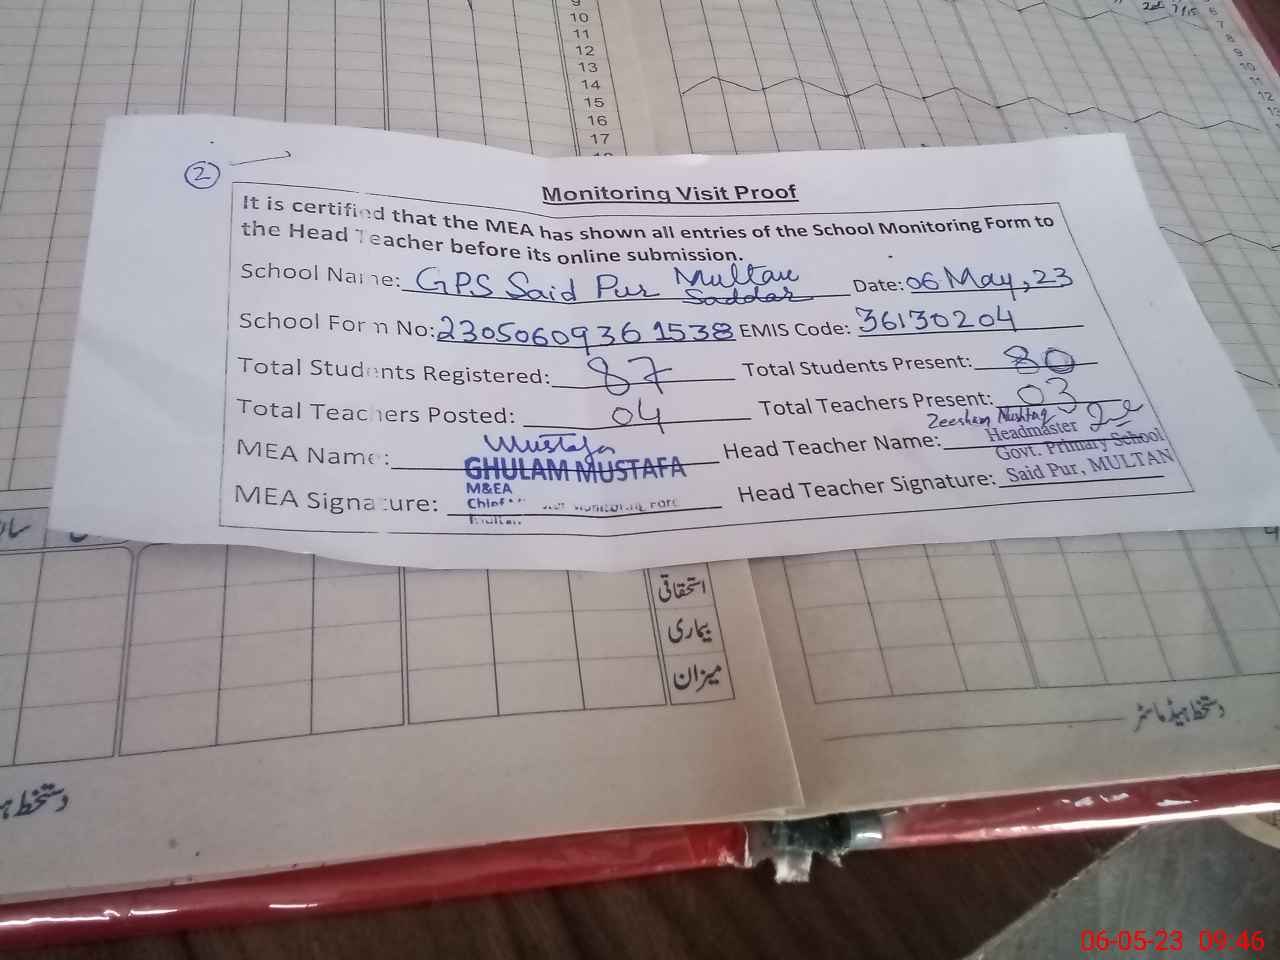 9
10
11
12
13
14
15
16
17
6
7
8
9
10
11
12
2
Monitoring Visit Proof
It is certified that the MEA has shown all entries of the School Monitoring Form to
the Head Teacher before its online submission.
School Name: GPS Said Pur Multan Saddar Date: 06 May, 23
School Form No: 23050609361538 EMIS Code: 36130204
Total Students Registered: 87 Total Students Present: 80
Total Teachers Posted: 04 Total Teachers Present: 03
MEA Name: Mustafa Head Teacher Name: Zeeshan Mushtaq
GHULAM MUSTAFA
M&EA
Chief
Multan
Headmaster
Govt. Primary School
Said Pur, MULTAN
MEA Signature: Head Teacher Signature:
استحقاقی
بیماری
میزان
دستخط ہیڈ ماسٹر
دستخط
06-05-23 09:46